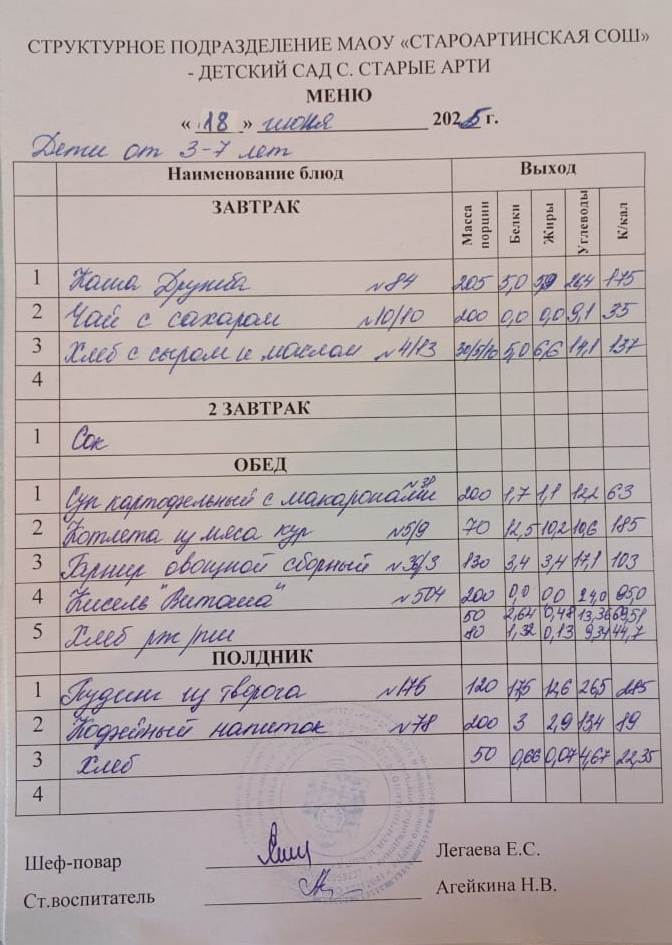 СТРУКТУРНОЕ ПОДРАЗДЕЛЕНИЕ МАОУ «СТАРОАРТИНСКАЯ СОШ»
- ДЕТСКИЙ САД С. СТАРЫЕ АРТИ
МЕНЮ
« 18 » июня 2025 г.
Дети от 3-7 лет
Наименование блюд Выход
ЗАВТРАК Масса порции Белки Жиры Углеводы К/кал
1 Каша Дружба №84 205 5,0 5,9 26,4 175
2 Чай с сахаром №10/10 200 0,0 0,0 9,1 35
3 Хлеб с сыром и маслом №4/13 30/5/10 5,0 6,6 14,1 137
4
2 ЗАВТРАК
1 Сок
ОБЕД
1 Суп картофельный с макаронами №38 200 1,7 1,1 12,2 63
2 Котлета из мяса кур №5/9 70 12,5 10,2 10,6 185
3 Гарнир овощной сборный 130 3,4 3,4 103
4 Кисель "Витоша" №504 200 0,0 0,0 24,0 95,0
5 Хлеб рж/пш 50 2,64 0,48 13,36 69,51
80 1,32 0,13 9,34 44,7
ПОЛДНИК
1 Пудинг из творога №176 120 17,5 12,6 26,5 285
2 Кофейный напиток №78 200 3 2,9 13,4 89
3 Хлеб 50 0,66 0,07 4,67 22,35
4
Шеф-повар Легаева Е.С.
Ст.воспитатель Агейкина Н.В.